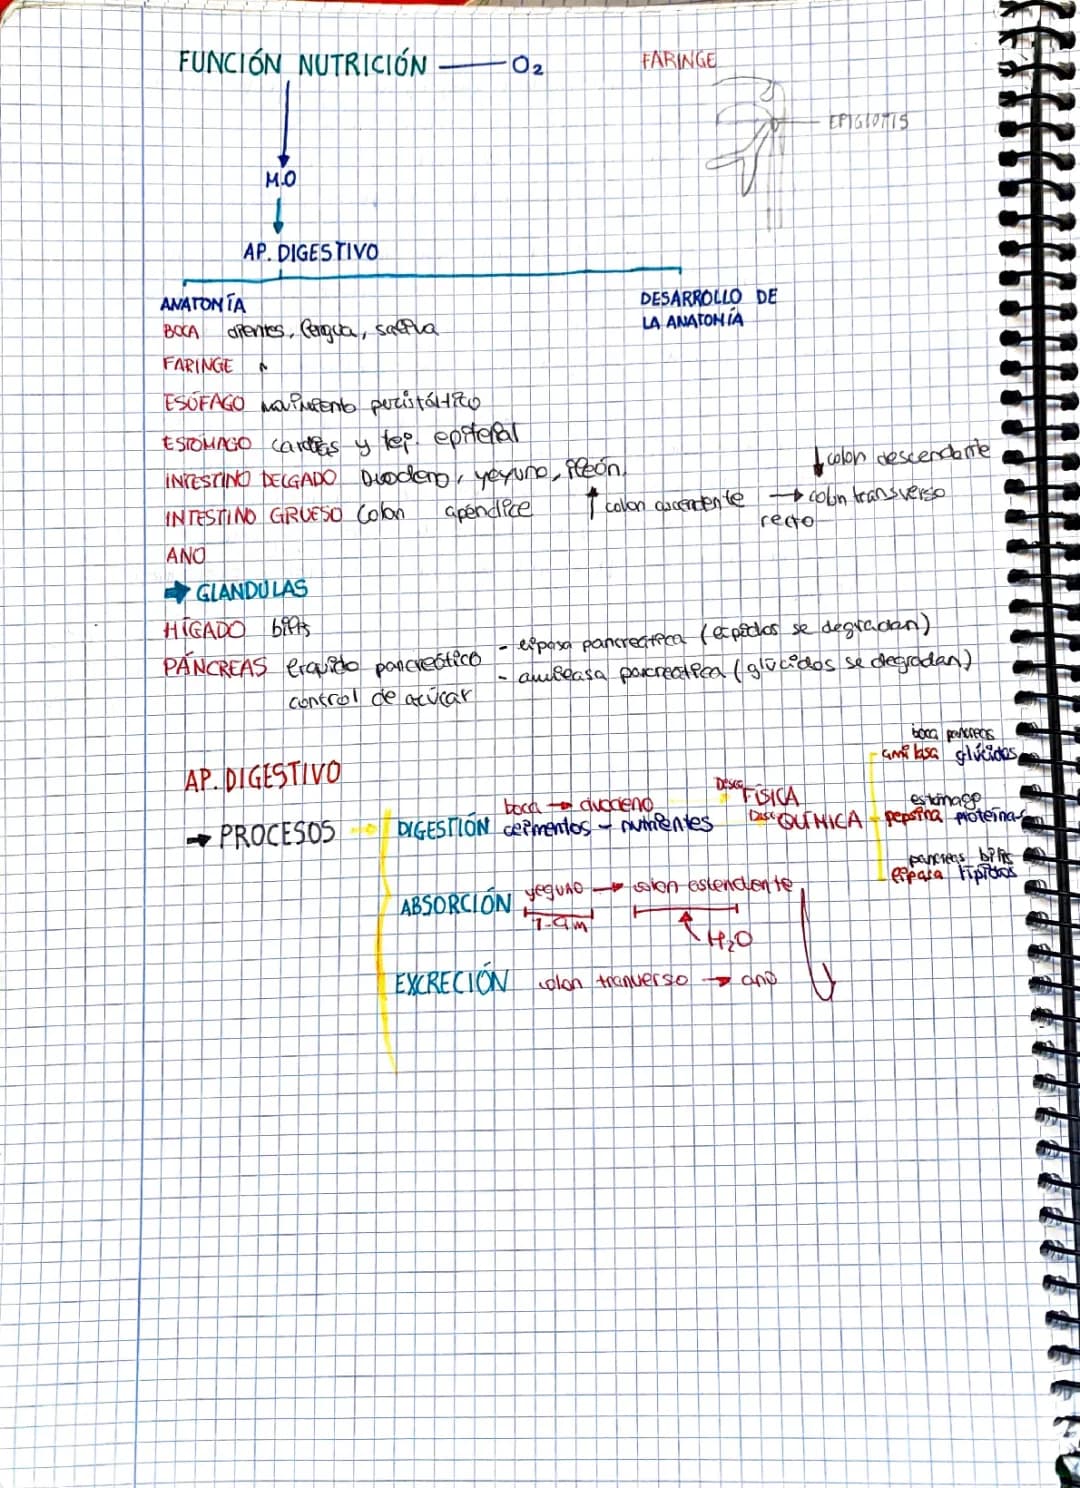 FUNCIÓN NUTRICIÓN — O2
FARINGE
EPIGLOTIS
M.O
AP. DIGESTIVO
ANATOMÍA
DESARROLLO DE
LA ANATOMÍA
BOCA dientes, lengua, saliva
FARINGE
ESÓFAGO movimiento peristáltico
ESTÓMAGO cardias y tej. epitelial
INTESTINO DELGADO Duodeno, yeyuno, íleón.
↓ colon descendante
INTESTINO GRUESO Colon apéndice ↑ colon ascendente → colon transverso
recto
ANO
➡ GLANDULAS
HÍGADO bilis
PÁNCREAS líquido pancreático
- lipasa pancreática (lípidos se degradan)
- amilasa pancreática (glúcidos se degradan)
control de azúcar
AP. DIGESTIVO
→ PROCESOS
DIGESTIÓN boca → duodeno
alimentos - nutrientes
Desc FÍSICA
Desc QUÍMICA
boca pancreas
amilasa glúcidos
estómago
pepsina proteínas
pancreas bilis
lipasa lípidos
ABSORCIÓN yeguno → colon estendente
H2O
EXCRECIÓN colon tranverso → ano